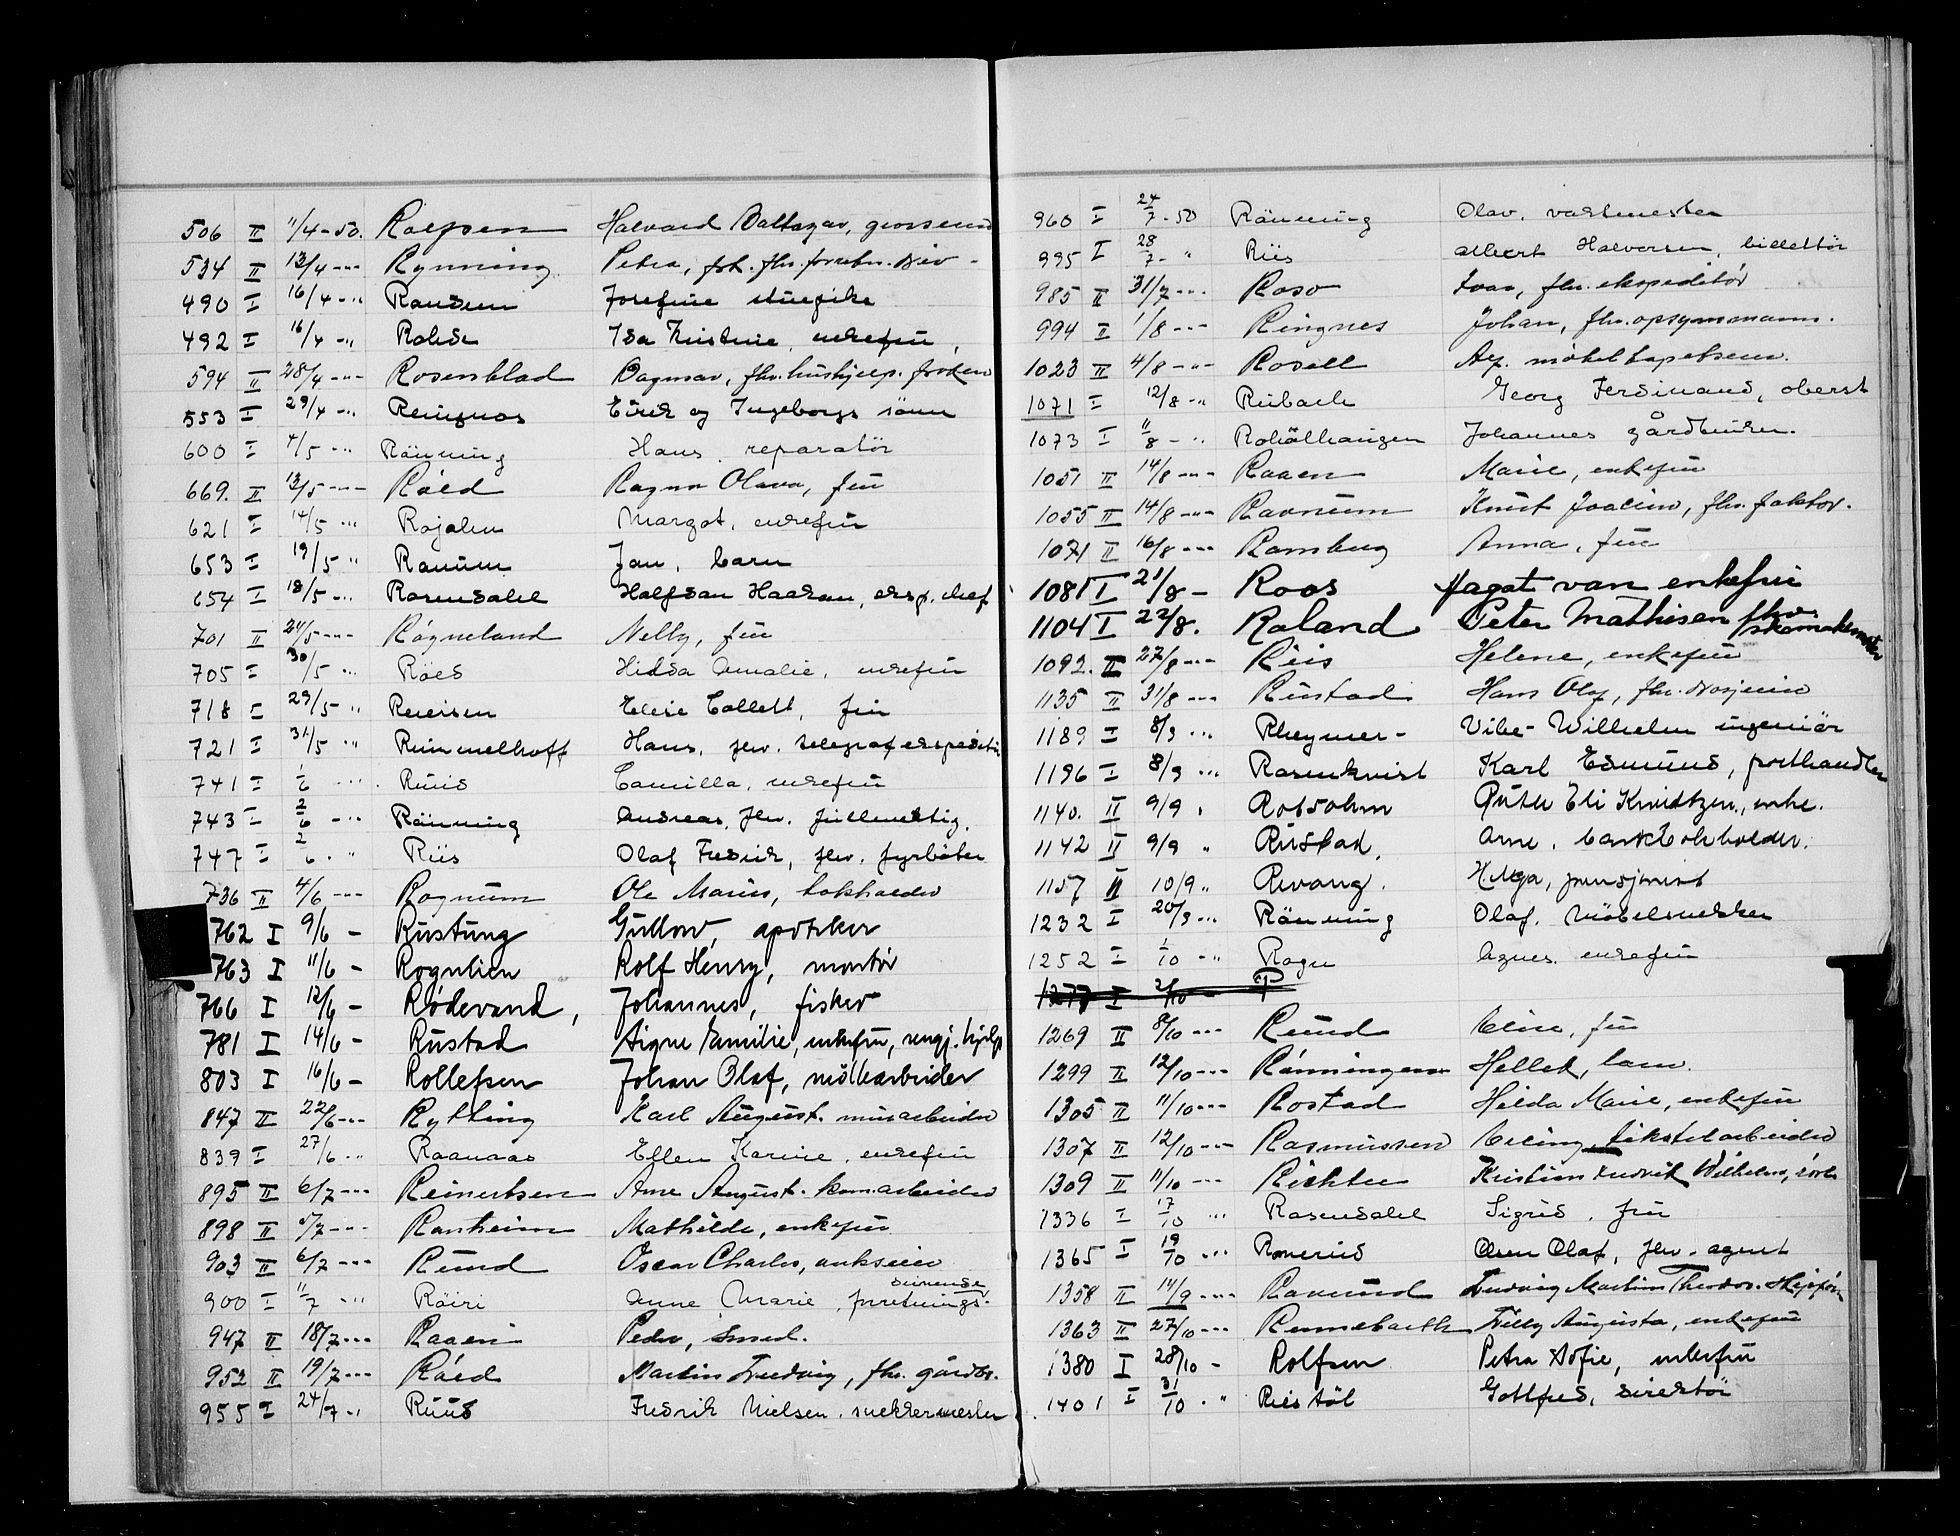 506 II 11/4-50. Roepsen Halvard Baltazar,
534 II 13/4 -"- Rynning Petra,
490 I 16/4 -"- Josefine stuepike
492 I 16/4 -"- Rohde Ida Kristine, enkefru,
594 II 28/4 -"- Rosenblad Dagmar, fhv. hushjelp. frøken
553 I 29/4 -"- Eirik og Ingeborgs sønn
600 I 4/5 -"- Rönning Hans, reparatør
669. II 13/5 -"- Röed Ragna Olava, fru
621 I 14/5 -"- Rojahn Margot, enkefru
653 I 19/5 " Ranum Jan, barn
654 I 18/5 -"- Rosendahl Halfdan Haakon, eksp. chef
701 II 24/5 -"- Rögneland Nelly, fru
705 I 30/5 " Röed Hilda Amalie, enkefru
718 I 29/5 -" Reiersen Elise Collett, fru
721 I 31/5 " Rummelhoff Hans, fhv. telegrafekspeditør
741 I 1/6 -"- Ruud Camilla, enkefru
743 I 2/6 -"- Rönning Andreas, fhv. fullmektig.
747 I 2/6 - " Riis Olaf Fredrik, fhv. fyrbøter
736 II 4/6 -"- Rognum Ole Marius,
762 I 9/6 - Rustung Gustav, apoteker
763 I 11/6 - Rognlien Rolf Henry, montør
766 I 12/6 - Rødevand, Johannes, fisker
781 I 14/6 - Rustad Signe Emilie, enkefru, rengj. hjelp
803 I 16/6 - Rollefsen Johan Olaf, møllearbeider
847 II 22/6 -"- Rytting Karl August. murarbeider
839 I 27/6 -"- Raanaas Ellen Karine, enkefru
895 II 6/7 -"- Reinertsen Arne August.
898 II 5/7 -"- Ranheim Mathilde, enkefru
903 II 6/7 -"- Rund Oscar Charles,
900 I 11/7 -"- Röiri Anne Marie, forretnings-
drivende
947 II 18/7 -"- Raaen Peder, smed.
952 II 19/7 -"- Röed Martin Ludvig, fhv. gårdbr.
955 I 24/7 -"- Ruud Fredrik Nielsen, snekkermester
960 I 24/7-50 Rönning Olav, vaktmester
995 I 28/7- " Riis Albert Halvorsen, billettør
985 II 31/7 -"- Roso Ivar, fhv. ekspeditør
994 II 1/8 -"- Ringnes Johan, fhv. opsynsmann.
1023 II 4/8 -"- Rosell
1071 I 12/8 -"- Georg Ferdinand, oberst
1073 I 11/8 - " Johannes gårdbruker.
1051 II 14/8 -"- Raaen Marie, enkefru
1055 II 14/8 -"- Ravnum Knut Joacim, fhv. faktor.
1071 II 16/8 -"- Ramberg Anna, fru
1081 I 21/8 - Roos Aagot van enkefru
1104 I 22/8. Roland Peter Mathisen fhv. skomakermester
1092. II 27/8 -"- Riis Helene, enkefru
1135 II 31/8 -"- Rustad Hans Olaf,
1189 I 8/9 -"- Rheymer- Vibe- Wilhelm ingeniør
1196 I 8/9 -"- Rosenkvist Karl Edmund,
1140. II 9/9 " Ruth Eli Knudtzen, enke.
1142 II 9/9 " Rustad, Arne, bankbokholder.
1157 II 10/9 " Revang. Helga, pensjonist
1232 I 20/9 -"- Rönning Olaf, Møbelsnekker
1252 I 1/10 - " Rogn Agnes enkefru
1277 I 2/10 -
1269 II 8/10 -"- Rund Eline, fru
1299 II 12/10 -"- Rönningen barn.
1305 II 11/10 -"- Rostad Hilda Marie, enkefru
1307 II 12/10 -"- Rasmussen Erling, tekstilarbeider
1309 II 11/10 -"- Richter Kristian Fredrik Wilhelm,
1336 I 17/10 -"- Rosendahl Sigrid, fru
1365 I 19/10 -"- Romerud Olsen Olaf, fhv. agent
1358 II 14/9 -"- Ramund Ludvig Martin Theodor. Skipsfør.
1363 II 27/10 -"- Tilly Augusta, enkefru
1380 I 28/10 - Rolfsen Petra Sofie, enkefru
1401 I 31/10 - " Riistöl Gottfred, direktør